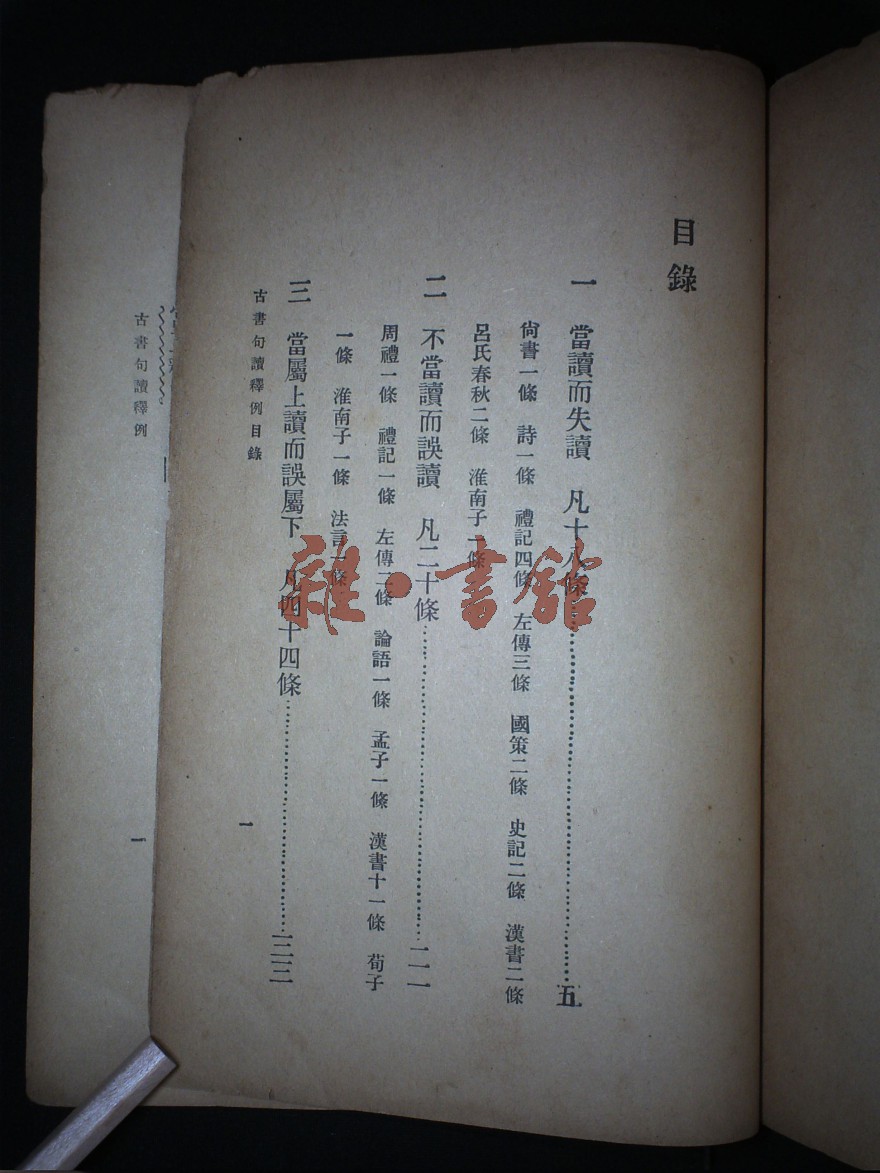 目錄
一　當讀而失讀　凡十八條……………………五
尙書一條　詩一條　禮記四條　左傳三條　國策二條　史記二條　漢書二條
呂氏春秋二條　淮南子一條
二　不當讀而誤讀　凡二十條……………………
周禮一條　禮記一條　左傳二條　論語一條　孟子一條　漢書十一條　荀子
一條　淮南子一條　法言一條
三　當屬上讀而誤屬下　凡四十四條……………………
古書句讀釋例目錄　一
古書句讀釋例　一
雜·書館